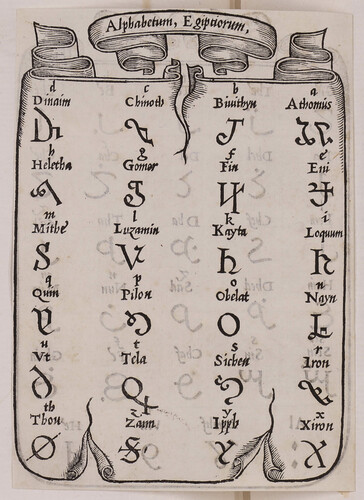 Alphabetum, Egiptiorum,
d c b a
Dinaim Chinoth Binithyn Athomus
h g f e
Heletha Gomor Fin Eni
m l k i
Mithe Luzamin Kayta Loquum
q p o n
Quin Pilon Obelat Nayn
u t s r
Vt Tela Sichen Iron
th z y x
Thou Zain Ipyb Xiron